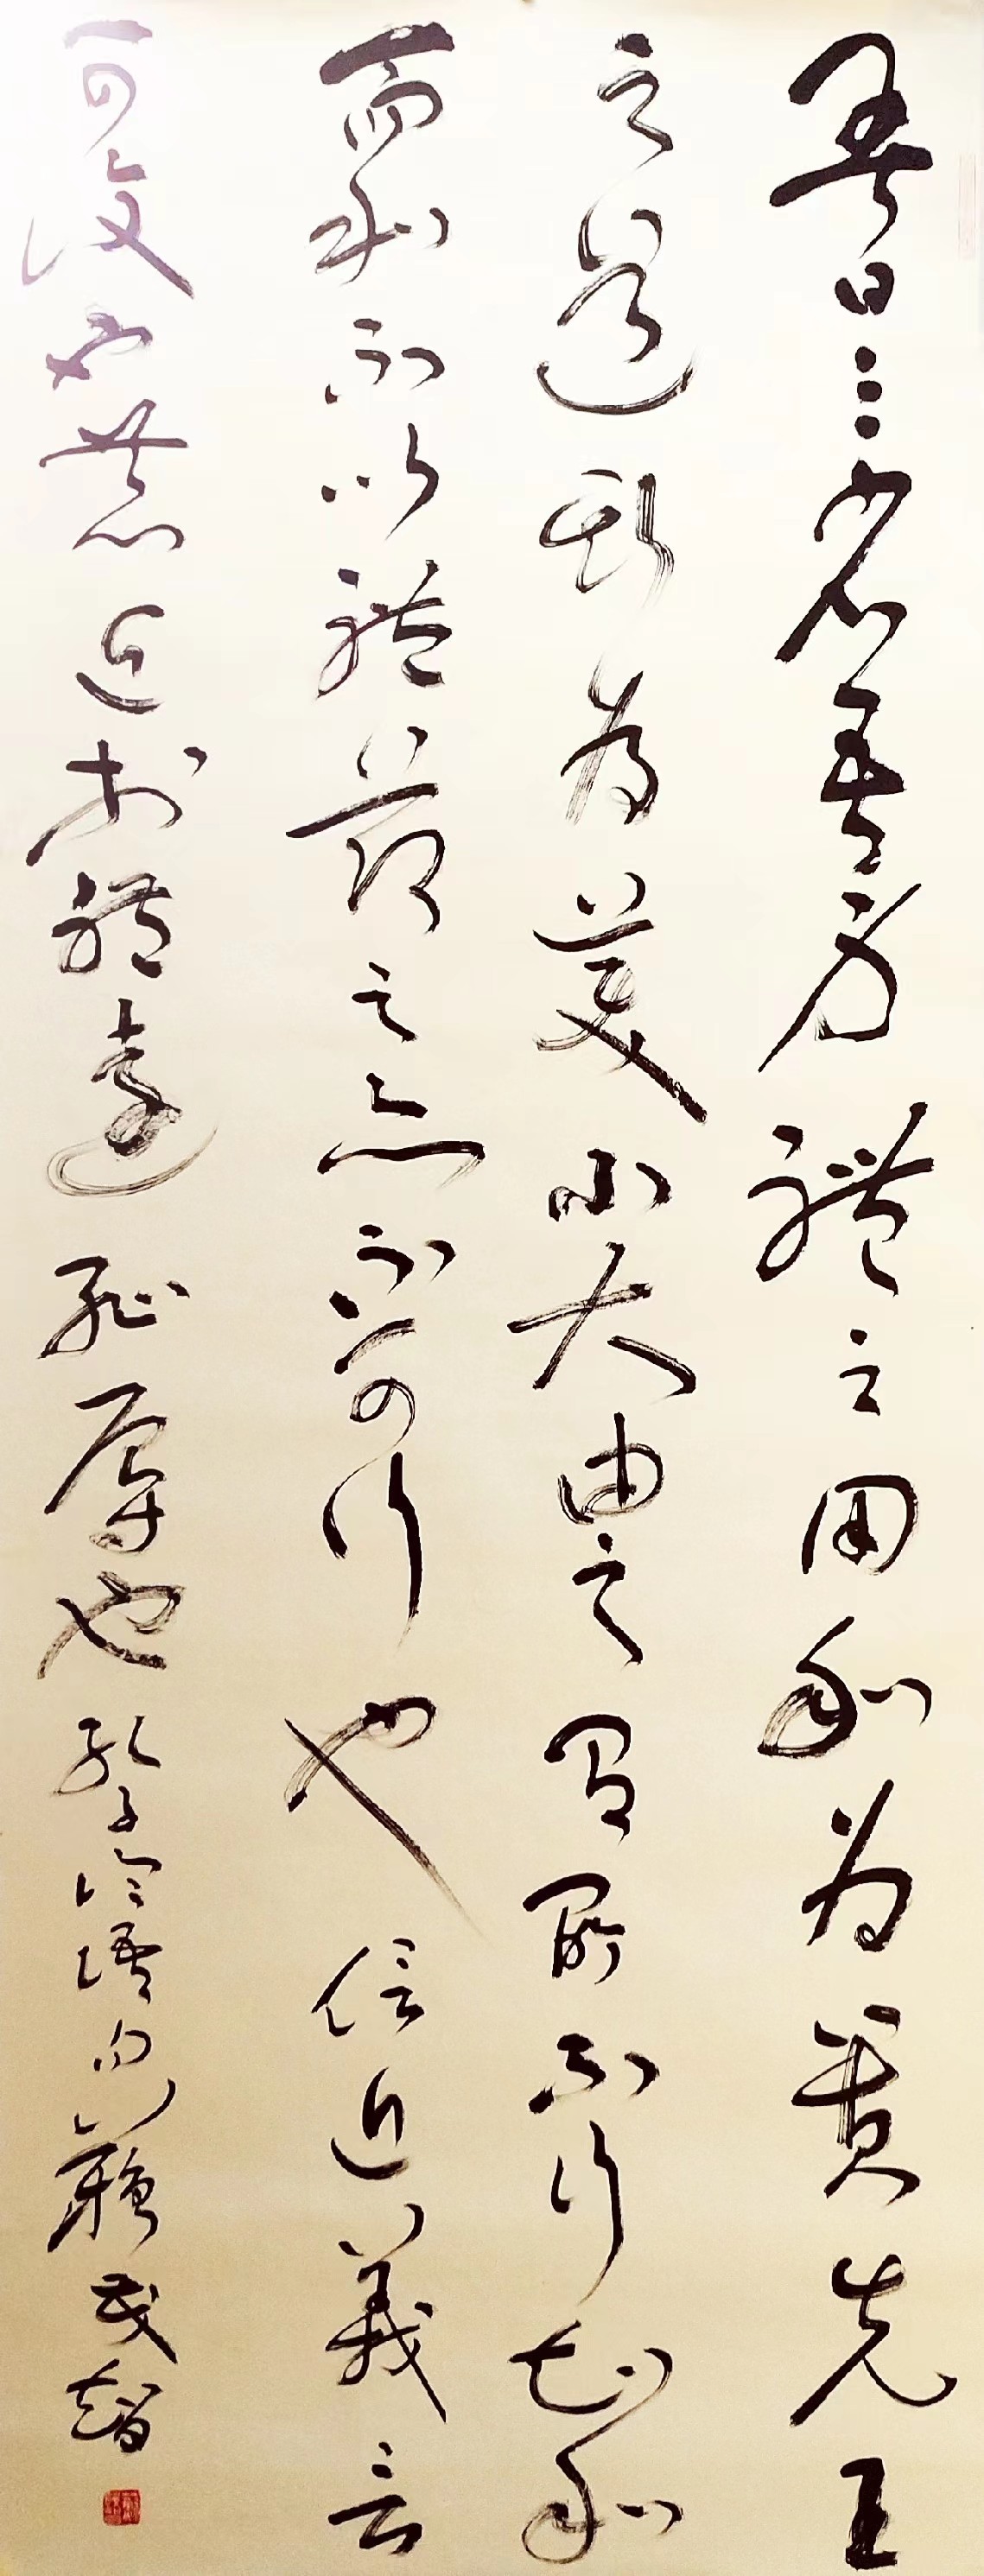 吾日三省吾身禮之用和為貴先王
之道斯為美小大由之有所不行知和
而和不以禮節之亦不可行也信近義言
可復也恭近於禮遠恥辱也孔子論語句蘇茂智